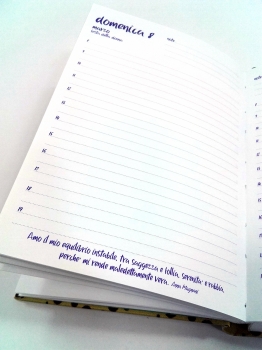 domenica 8
marzo
festa della donna
8
9
10
11
12
13
14
15
16
17
18
19
Amo il mio equilibrio instabile, tra saggezza e follia, serenità e rabbia,
perché mi rende maledettamente vera. Anna Magnani